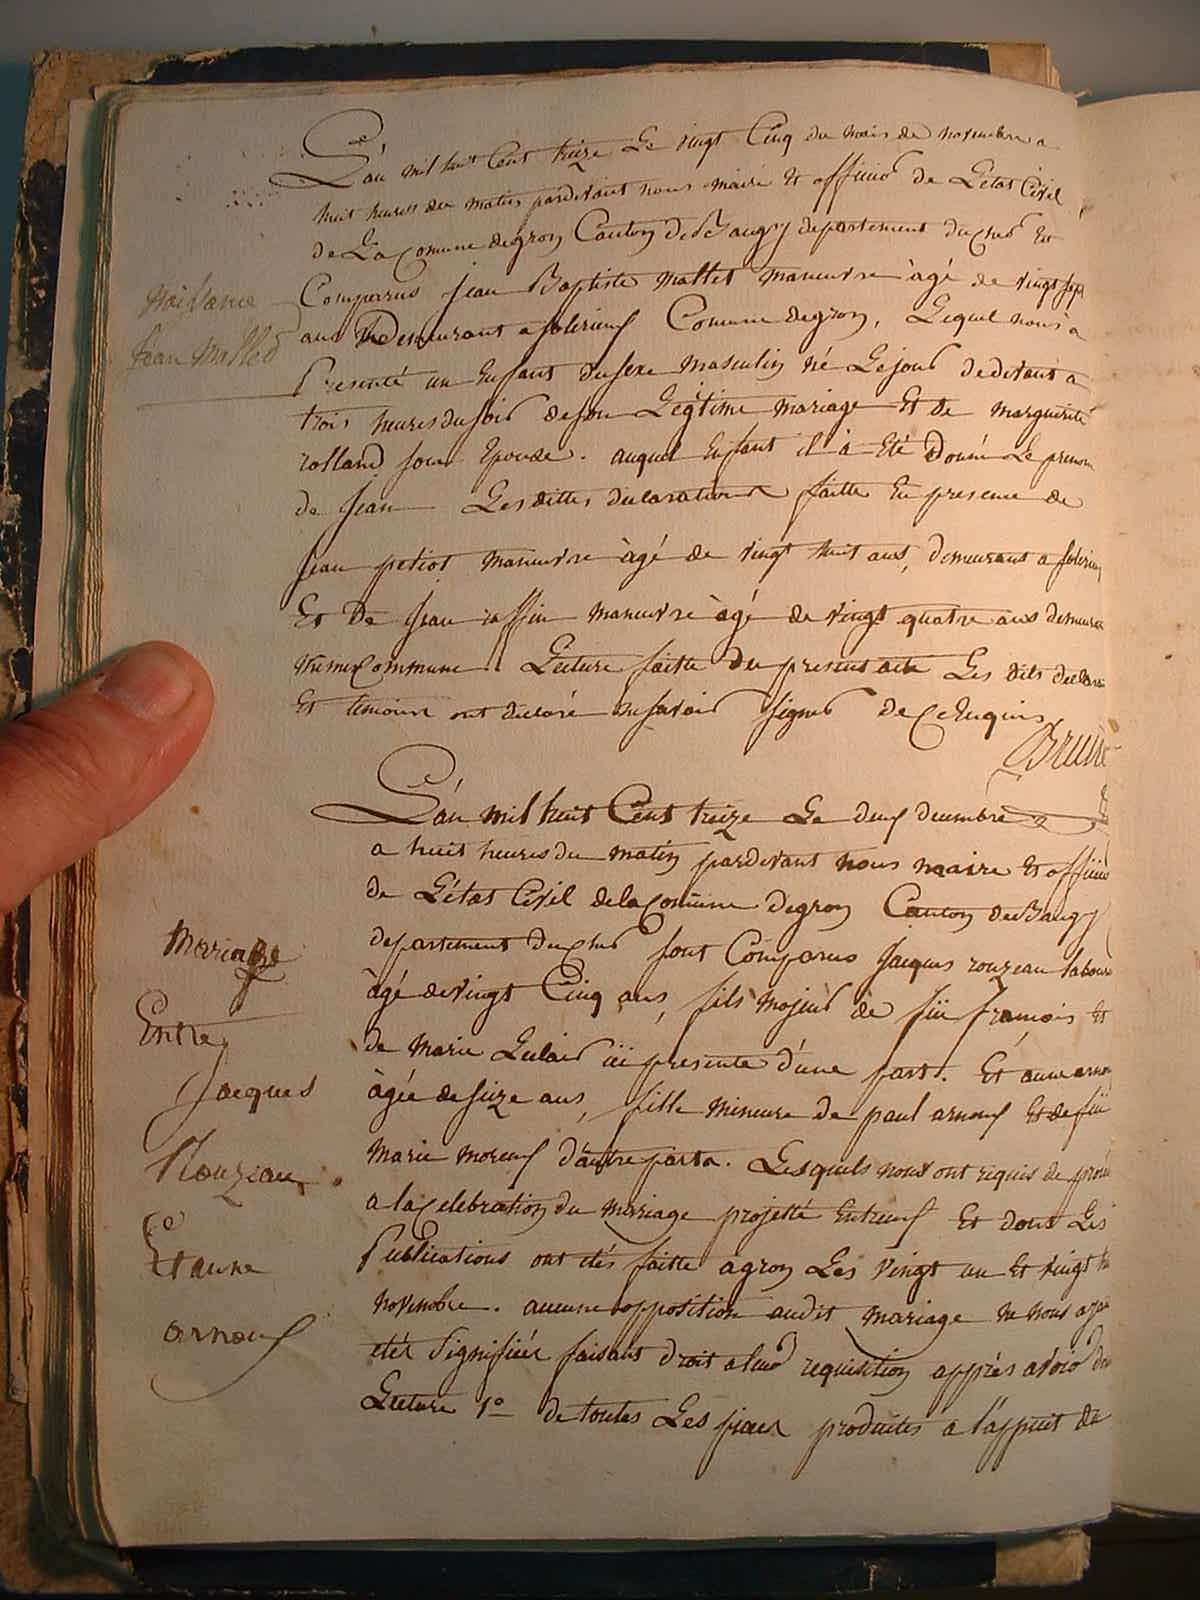 L'an mil huit Cent treize Le vingt Cinq du mois de novembre a
huit heures du matin pardevant nous maire Et officier de L'état Civil
de La Comune degron Canton de Baugy departement du cher Est
Comparus jean Baptiste mallet maneuvre àgé de vingt sept
ans Demeurant a Comune degron, Lequel nous a
Presenté un Enfant du sexe masculin né Lejour dedevant a
trois heures du soir de son Légitime mariage Et de marguerite
rolland son Epouse. auquel Enfant il à Eté Donné Le prenom
de Jean Les dittes déclarations faitte En presence de
jean petiot maneuvre àgé de vingt huit ans, demeurant a
Et De jean maneuvre àgé de vingt quatre ans demeurant
Commune. Lecture faitte du present acte Les dits
Et temoins ont déclaré ne savoir signer de Ce Enquis
Naissance
Jean Mallet
L'an mil huit Cent treize Le deux decembre
a huit heures du matin pardevant nous maire Et officier
de L'état Civil dela Comune degron Canton de Baugy
departement du cher sont Comparus jacques rouzeau
àgé de vingt Cinq ans, fils majeur de feu francois Et
de marie ici presente d'une part. Et anne
àgée de seize ans, fille mineure de paul arnouf Et de feu
marie moreuf d'autre parta. Lesquels nous ont requis de
a la Celebration du mariage projetté Entreux Et dont Les
Publications ont étés faitte agron Les vingt un Et vingt
novembre. aucune opposition audit mariage ne nous
étér Signifiér faisant Droit a leur requisition apprés avoir
Lecture 1o de toutes Les pieces produittes a l'appuit de
Mariage
Entre
Jacques
Rouzeau
Et anne
arnouf